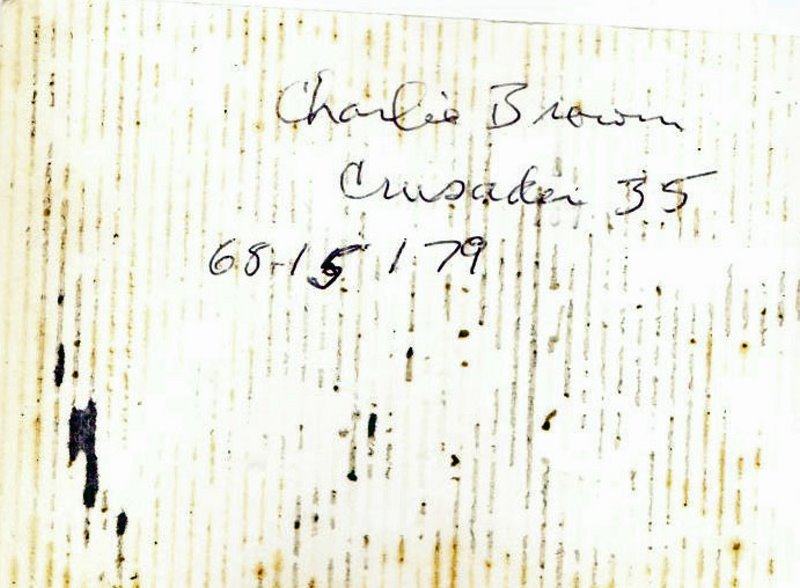 Charlie Brown
Crusader 35
68-15179